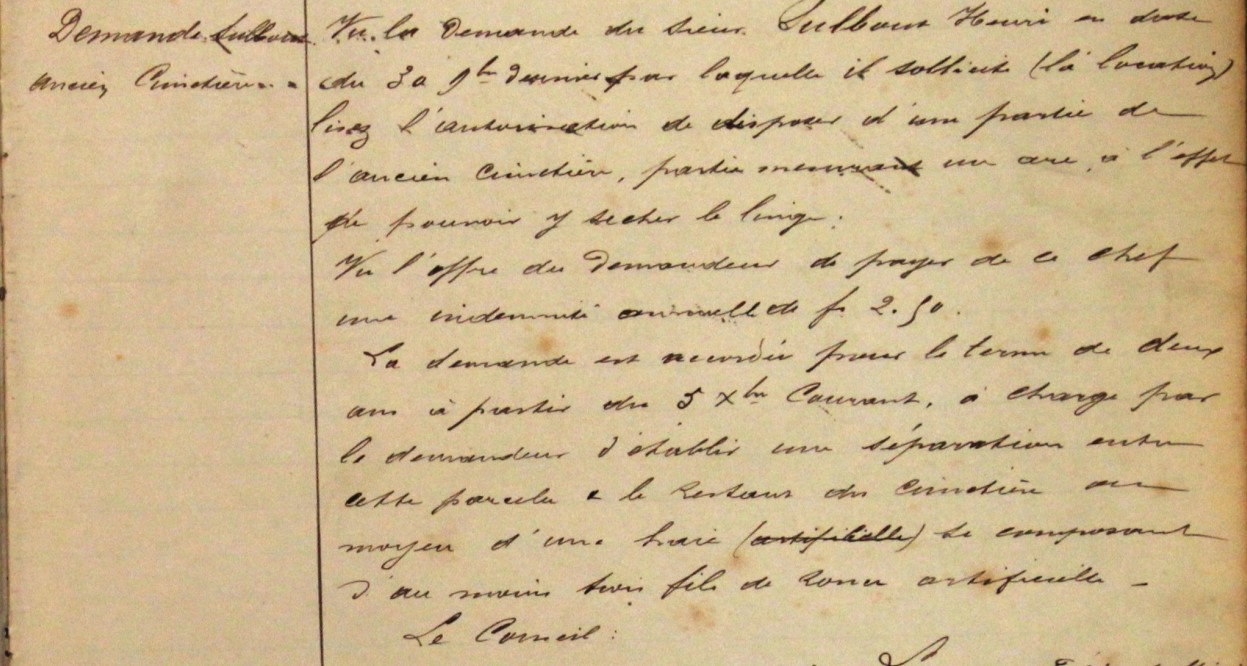 Demande Sulbout
ancien Cimetière.
Vu la Demande du sieur Sulbout Henri en date
du 30 9bre dernier par laquelle il sollicite (la location)
lisez l'autorisation de disposer d'une partie de
l'ancien cimetière, partie mesurant un are, à l'effet
de pouvoir y secher le linge.
Vu l'offre du demandeur de payer de ce chef
une indemnité annuelle de fr 2.50.
La demande est accordée pour le terme de deux
ans à partir du 5 Xbre Courant, à charge par
le demandeur d'établir une séparation entre
cette parcelle & le restant du cimetière au
moyen d'une haie (artificielle) se composant
d'au moins trois fils de ronce artificielle -
Le Conseil: